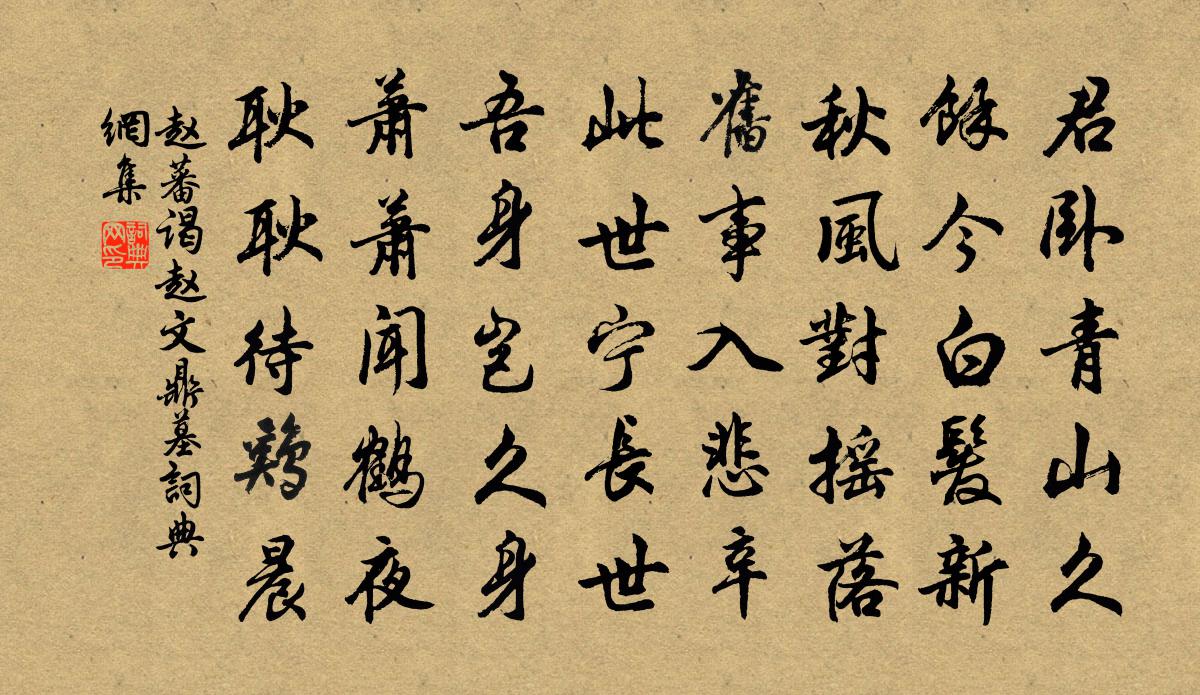 君卧青山久
餘今白髮新
秋風對摇落
舊事入悲辛
此世宁長世
吾身岂久身
蕭蕭聞鶴夜
耿耿待鷄晨
赵蕃谒赵文鼎墓詞典
網集
詞典
网印